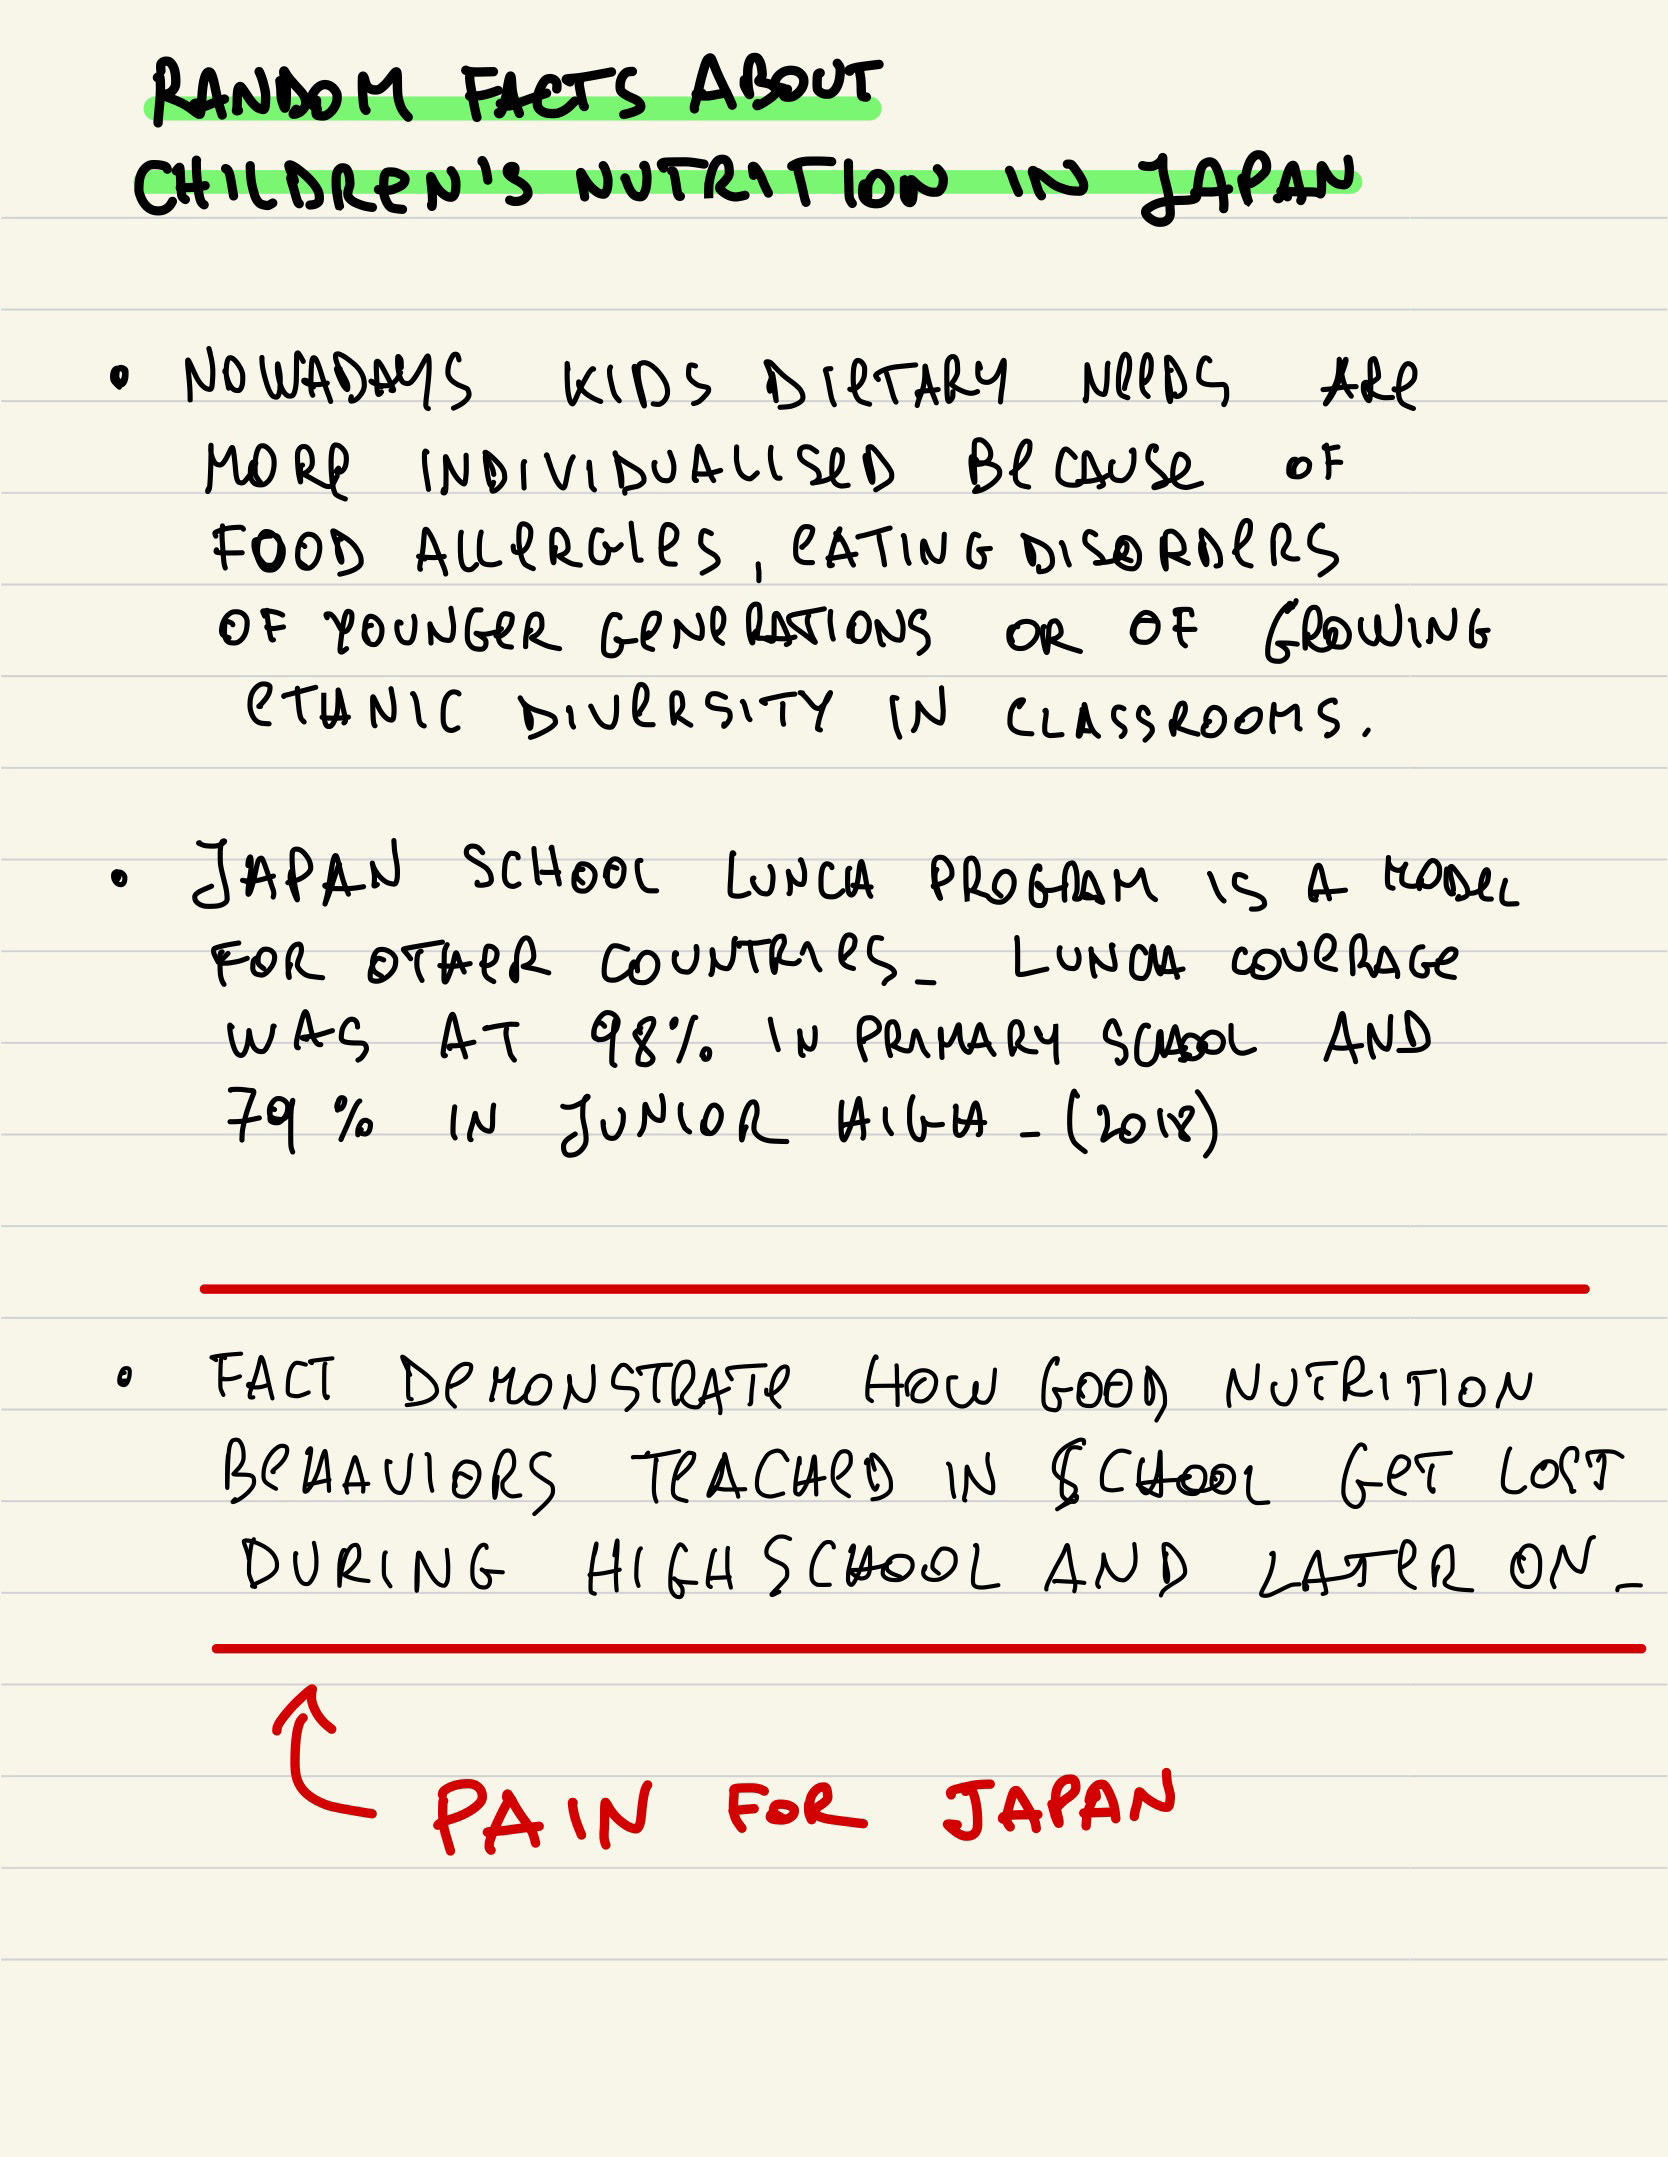 RANDOM FACTS ABOUT
CHILDREN'S NUTRITION IN JAPAN
• NOWADAYS KIDS DIETARY NEEDS ARE
MORE INDIVIDUALISED BECAUSE OF
FOOD ALLERGIES, EATING DISORDERS
OF YOUNGER GENERATIONS OR OF GROWING
ETHNIC DIVERSITY IN CLASSROOMS.
• JAPAN SCHOOL LUNCH PROGRAM IS A MODEL
FOR OTHER COUNTRIES_ LUNCH COVERAGE
WAS AT 98% IN PRIMARY SCHOOL AND
79% IN JUNIOR HIGH_(2018)
• FACT DEMONSTRATE HOW GOOD NUTRITION
BEHAVIORS TEACHED IN SCHOOL GET LOST
DURING HIGHSCHOOL AND LATER ON_
PAIN FOR JAPAN